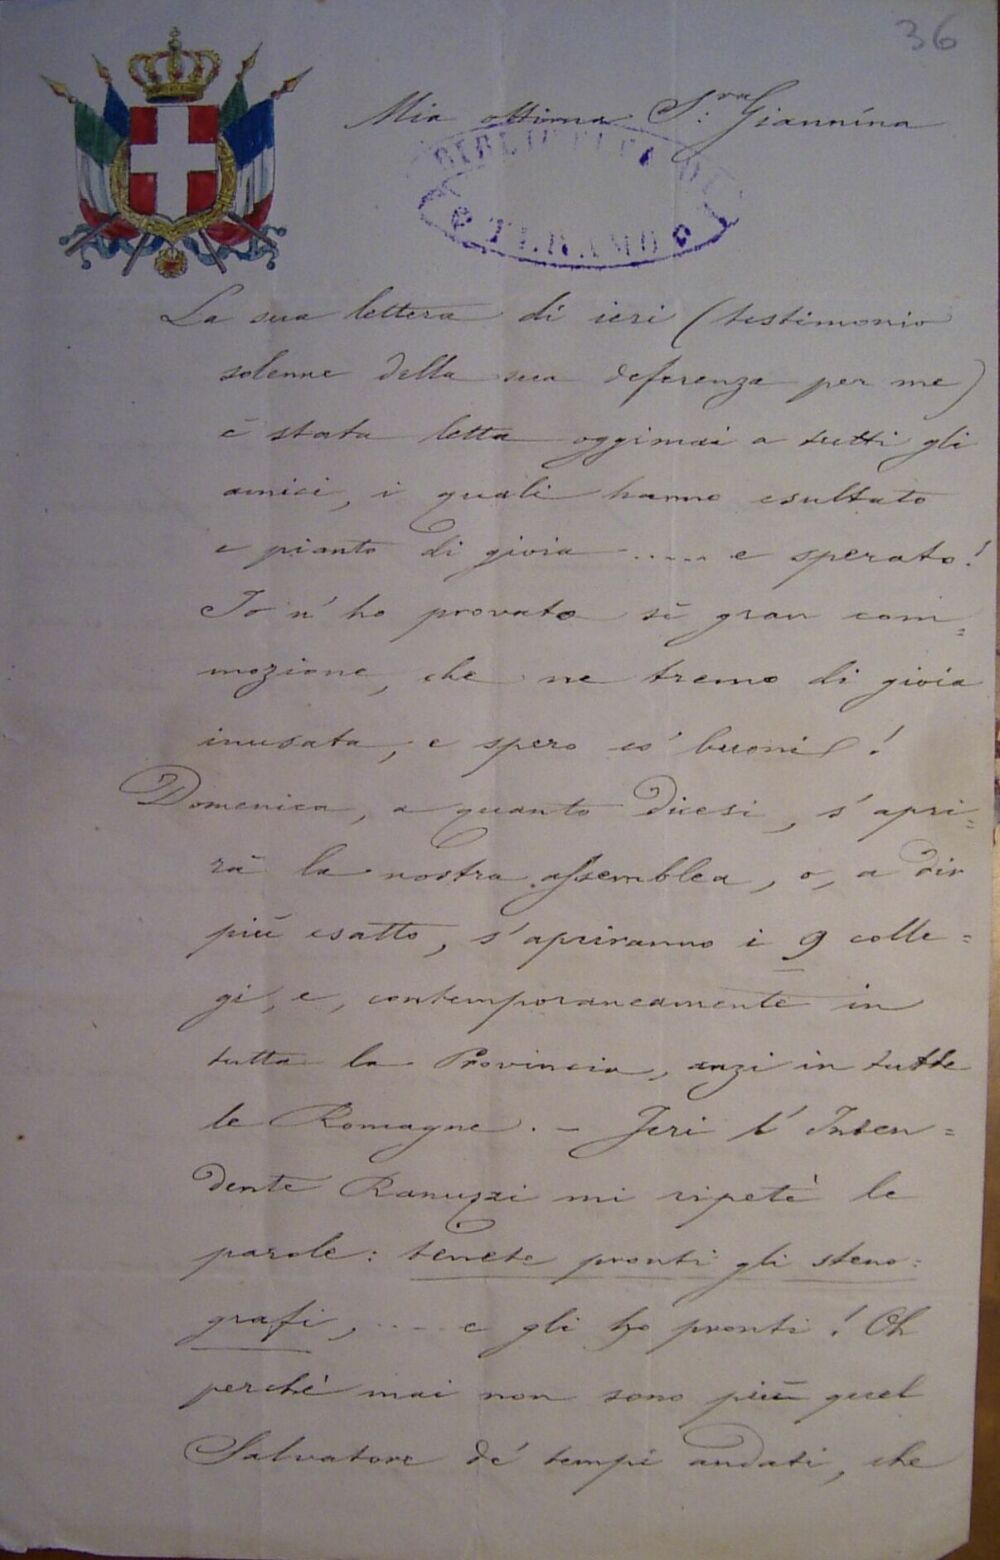 36
Mia ottima S.ra Giannina
BIBLIOTECA DI
TERAMO
La sua lettera di ieri (testimonio
solenne della sua deferenza per me)
è stata letta oggimai a tutti gli
amici, i quali hanno esultato
e pianto di gioia ..... e sperato!
Io n'ho provato sì gran com=
mozione, che ne tremo di gioia
inusata, e spero co' buoni!
Domenica, a quanto dicesi, s'apri=
rà la nostra assemblea, o, a dir
più esatto, s'apriranno i 9 colle=
gi, e, contemporaneamente in
tutta la Provincia, anzi in tutte
le Romagne. - Jeri l'Inten=
dente Ranuzzi mi ripetè le
parole: tenete pronti gli steno=
grafi, .... e gli ho pronti! Oh
perchè mai non sono più quel
Salvatore de' tempi andati, che